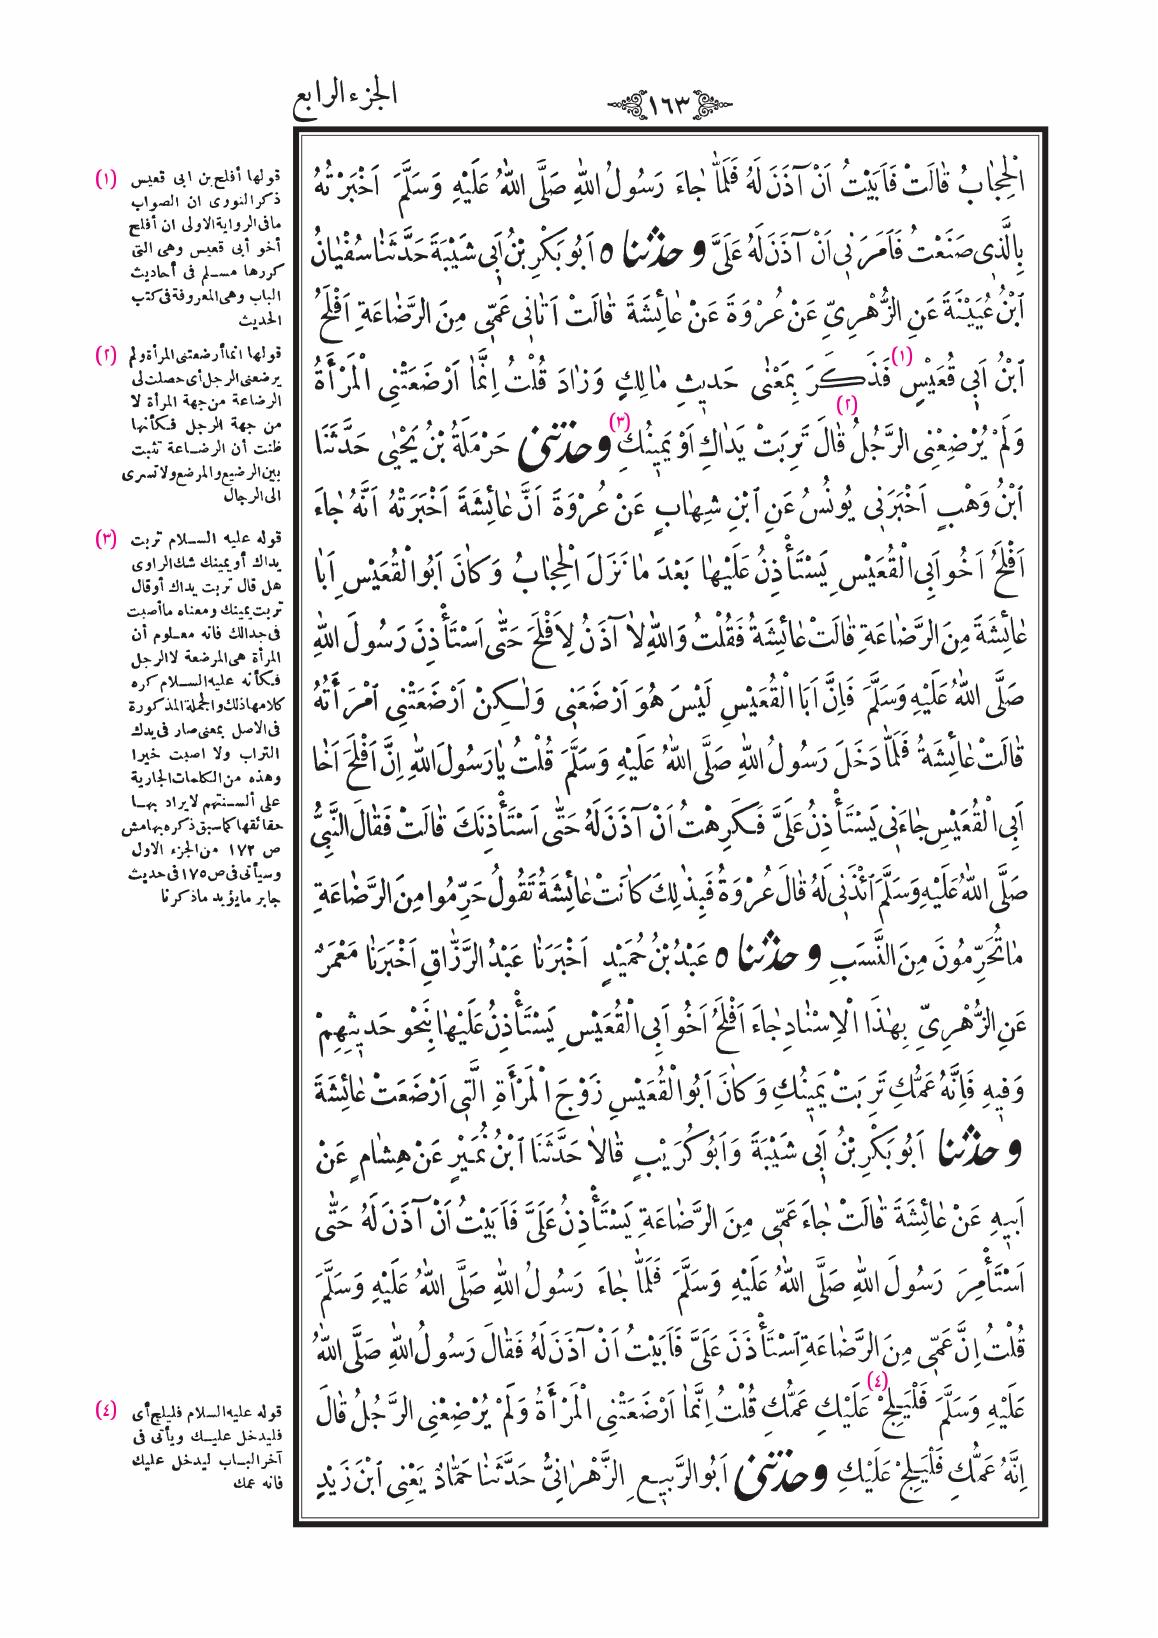 الجزء الرابع
١٦٣
الْحِجَابُ قَالَتْ فَاَبَيْتُ اَنْ آذَنَ لَهُ فَلَمَّا جَاءَ رَسُولُ اللهِ صَلَّى اللهُ عَلَيْهِ وَسَلَّمَ اَخْبَرْتُهُ
بِالَّذِى صَنَعْتُ فَاَمَرَنِى اَنْ آذَنَ لَهُ عَلَىَّ وحدثنا ٥ اَبُو بَكْرِ بْنُ اَبِى شَيْبَةَ حَدَّثَنَا سُفْيَانُ
ابْنُ عُيَيْنَةَ عَنِ الزُّهْرِىِّ عَنْ عُرْوَةَ عَنْ عَائِشَةَ قَالَتْ اَتَانِى عَمِّى مِنَ الرَّضَاعَةِ اَفْلَحُ
ابْنُ اَبِى قُعَيْسٍ (١) فَذَكَرَ بِمَعْنٰى حَديثِ مَالِكٍ وَزَادَ قُلْتُ اِنَّمَا اَرْضَعَتْنِى الْمَرْأَةُ
وَلَمْ يُرْضِعْنِى الرَّجُلُ (٢) قَالَ تَرِبَتْ يَدَاكِ اَوْ يَمِينُكِ (٣) وحدثنى حَرْمَلَةُ بْنُ يَحْيٰى حَدَّثَنَا
ابْنُ وَهْبٍ اَخْبَرَنِى يُونُسُ عَنِ ابْنِ شِهَابٍ عَنْ عُرْوَةَ اَنَّ عَائِشَةَ اَخْبَرَتْهُ اَنَّهُ جَاءَ
اَفْلَحُ اَخُو اَبِى الْقُعَيْسِ يَسْتَأْذِنُ عَلَيْهَا بَعْدَ مَا نَزَلَ الْحِجَابُ وَكَانَ اَبُو الْقُعَيْسِ اَبَا
عَائِشَةَ مِنَ الرَّضَاعَةِ قَالَتْ عَائِشَةُ فَقُلْتُ وَاللهِ لَا آذَنُ لِاَفْلَحَ حَتّٰى اَسْتَأْذِنَ رَسُولَ اللهِ
صَلَّى اللهُ عَلَيْهِ وَسَلَّمَ فَاِنَّ اَبَا الْقُعَيْسِ لَيْسَ هُوَ اَرْضَعَنِى وَلٰكِنْ اَرْضَعَتْنِى امْرَأَتُهُ
قَالَتْ عَائِشَةُ فَلَمَّا دَخَلَ رَسُولُ اللهِ صَلَّى اللهُ عَلَيْهِ وَسَلَّمَ قُلْتُ يَا رَسُولَ اللهِ اِنَّ اَفْلَحَ اَخَا
اَبِى الْقُعَيْسِ جَاءَنِى يَسْتَأْذِنُ عَلَىَّ فَكَرِهْتُ اَنْ آذَنَ لَهُ حَتّٰى اَسْتَأْذِنَكَ قَالَتْ فَقَالَ النَّبِىُّ
صَلَّى اللهُ عَلَيْهِ وَسَلَّمَ ائْذَنِى لَهُ قَالَ عُرْوَةُ فَبِذٰلِكَ كَانَتْ عَائِشَةُ تَقُولُ حَرِّمُوا مِنَ الرَّضَاعَةِ
مَا تُحَرِّمُونَ مِنَ النَّسَبِ وحدثنا ٥ عَبْدُ بْنُ حُمَيْدٍ اَخْبَرَنَا عَبْدُ الرَّزَّاقِ اَخْبَرَنَا مَعْمَرٌ
عَنِ الزُّهْرِىِّ بِهٰذَا الْاِسْنَادِ جَاءَ اَفْلَحُ اَخُو اَبِى الْقُعَيْسِ يَسْتَأْذِنُ عَلَيْهَا بِنَحْوِ حَديثِهِمْ
وَفِيهِ فَاِنَّهُ عَمُّكِ تَرِبَتْ يَمِينُكِ وَكَانَ اَبُو الْقُعَيْسِ زَوْجَ الْمَرْأَةِ الَّتِى اَرْضَعَتْ عَائِشَةَ
وحدثنا اَبُو بَكْرِ بْنُ اَبِى شَيْبَةَ وَاَبُو كُرَيْبٍ قَالَا حَدَّثَنَا ابْنُ نُمَيْرٍ عَنْ هِشَامٍ عَنْ
اَبِيهِ عَنْ عَائِشَةَ قَالَتْ جَاءَ عَمِّى مِنَ الرَّضَاعَةِ يَسْتَأْذِنُ عَلَىَّ فَاَبَيْتُ اَنْ آذَنَ لَهُ حَتّٰى
اَسْتَأْمِرَ رَسُولَ اللهِ صَلَّى اللهُ عَلَيْهِ وَسَلَّمَ فَلَمَّا جَاءَ رَسُولُ اللهِ صَلَّى اللهُ عَلَيْهِ وَسَلَّمَ
قُلْتُ اِنَّ عَمِّى مِنَ الرَّضَاعَةِ اسْتَأْذَنَ عَلَىَّ فَاَبَيْتُ اَنْ آذَنَ لَهُ فَقَالَ رَسُولُ اللهِ صَلَّى اللهُ
عَلَيْهِ وَسَلَّمَ فَلْيَلِجْ (٤) عَلَيْكِ عَمُّكِ قُلْتُ اِنَّمَا اَرْضَعَتْنِى الْمَرْأَةُ وَلَمْ يُرْضِعْنِى الرَّجُلُ قَالَ
اِنَّهُ عَمُّكِ فَلْيَلِجْ عَلَيْكِ وحدثنى اَبُو الرَّبِيعِ الزَّهْرَانِىُّ حَدَّثَنَا حَمَّادٌ يَعْنِى ابْنَ زَيْدٍ
(١) قولها أفلح بن ابى قعيس
ذكر النورى ان الصواب
ما فى الرواية الاولى ان أفلح
أخو أبى قعيس وهى التى
كررها مسلم فى أحاديث
الباب وهى المعروفة فى كتب
الحديث
(٢) قولها انما أرضعتنى المرأة ولم
يرضعنى الرجل أى حصلت لى
الرضاعة من جهة المرأة لا
من جهة الرجل فكأنها
ظنت أن الرضاعة تثبت
بين الرضيع والمرضع ولا تسرى
الى الرجال
(٣) قوله عليه السلام تربت
يداك أو يمينك شك الراوى
هل قال تربت يداك أو قال
تربت يمينك ومعناه ما أصبت
فى جدالك فانه معلوم أن
المرأة هى المرضعة لا الرجل
فكأنه عليه السلام كره
كلامها ذلك والجملة المذكورة
فى الاصل بمعنى صار فى يدك
التراب ولا اصبت خيرا
وهذه من الكلمات الجارية
على ألسنتهم لا يراد بها
حقائقها كما سبق ذكره بهامش
ص ١٧٢ من الجزء الاول
وسيأتى فى ص ١٧٥ فى حديث
جابر ما يؤيد ما ذكرنا
(٤) قوله عليه السلام فليلج أى
فليدخل عليك ويأتى فى
آخر الباب ليدخل عليك
فانه عمك